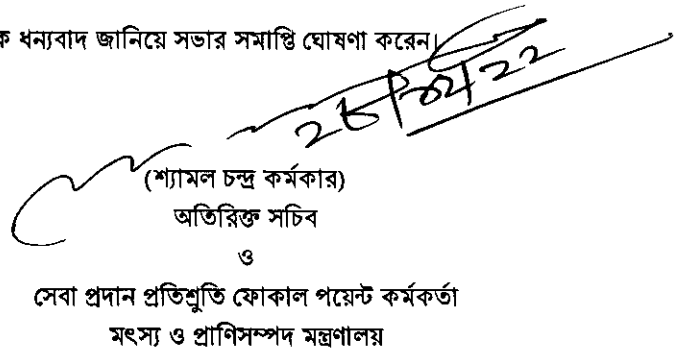 ক ধন্যবাদ জানিয়ে সভার সমাপ্তি ঘোষণা করেন।
(শ্যামল চন্দ্র কর্মকার)
অতিরিক্ত সচিব
ও
সেবা প্রদান প্রতিশ্রুতি ফোকাল পয়েন্ট কর্মকর্তা
মৎস্য ও প্রাণিসম্পদ মন্ত্রণালয়